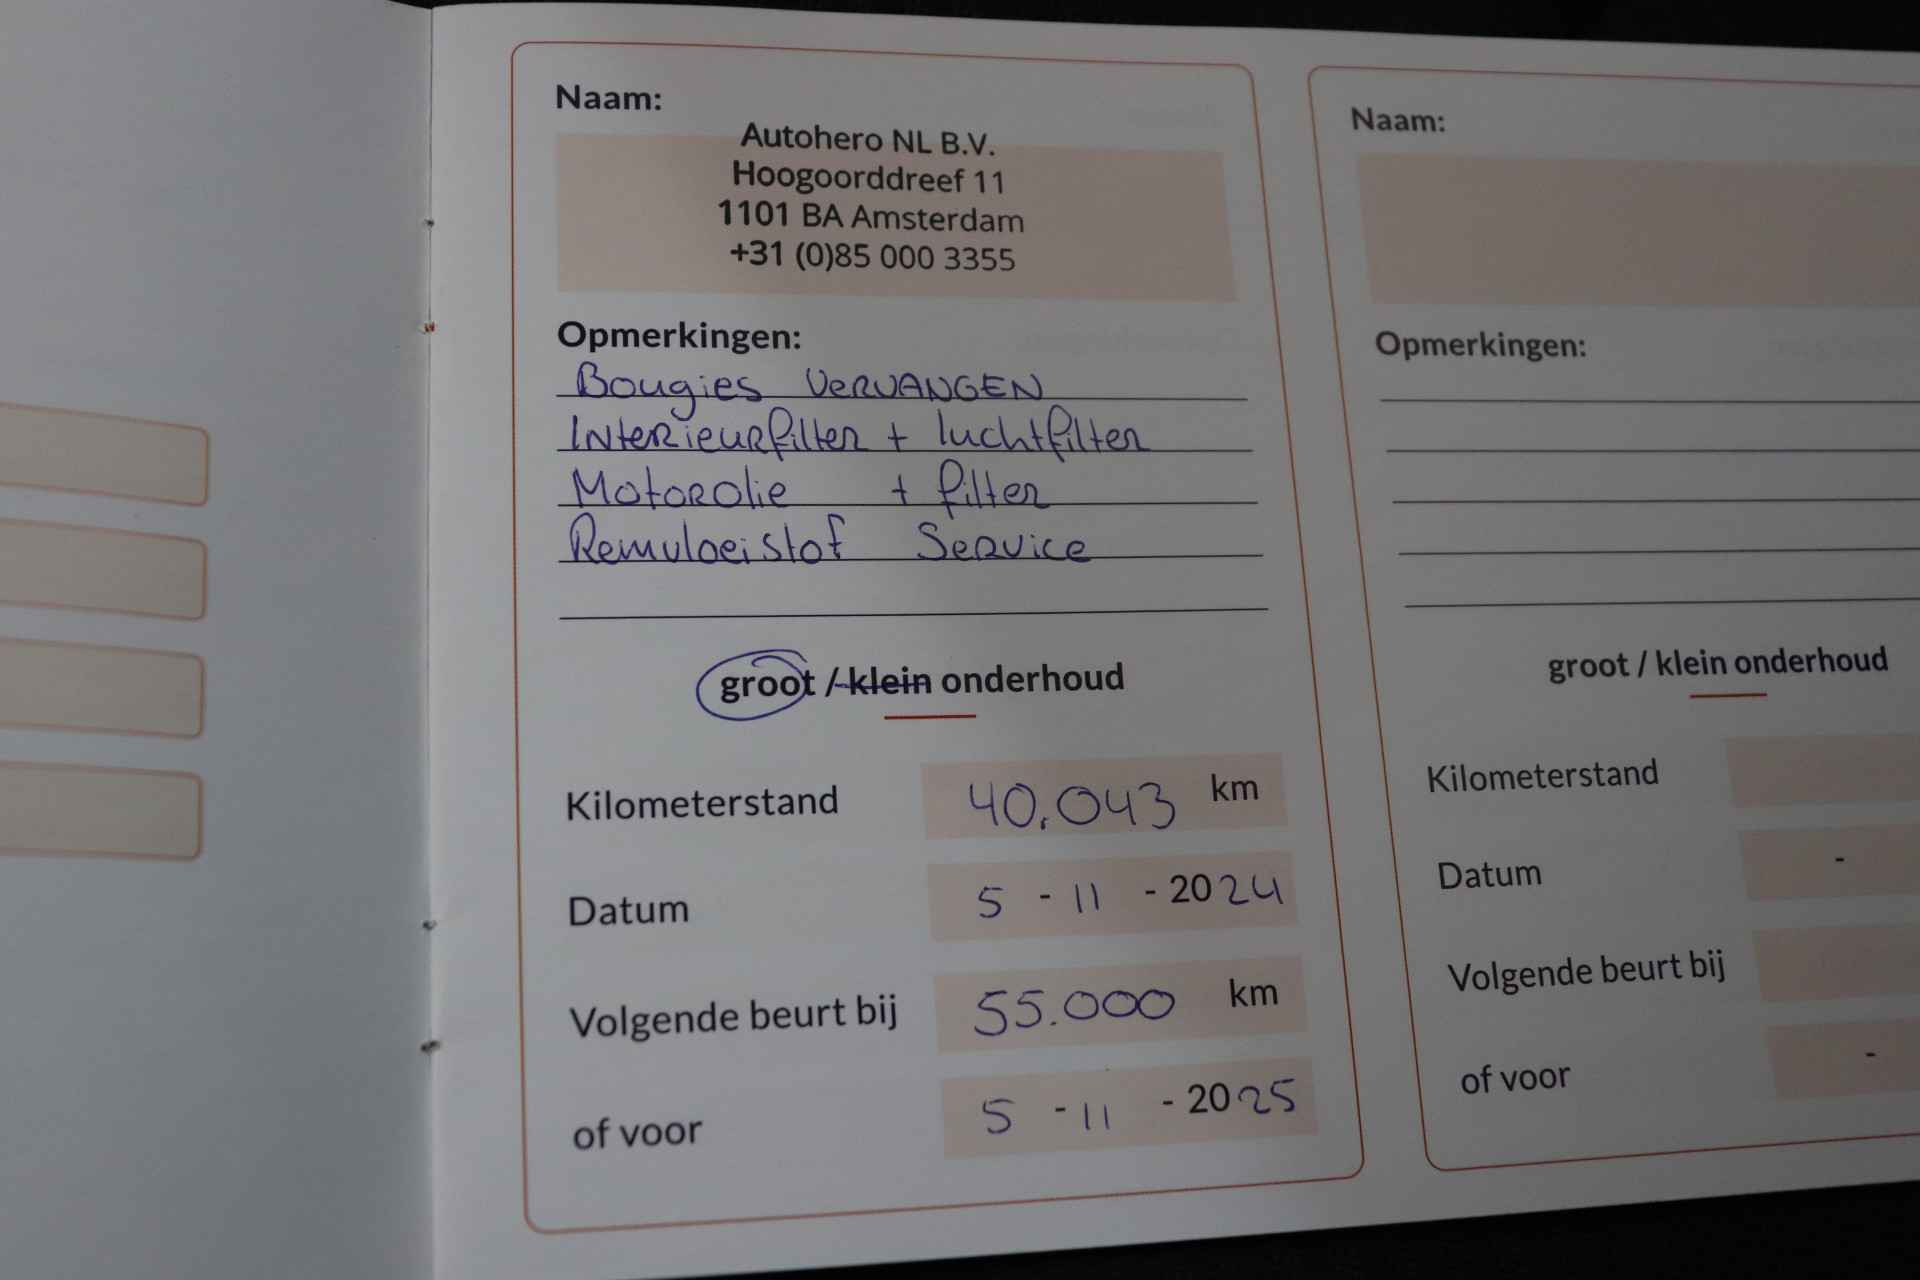 Naam:
Autohero NL B.V.
Hoogoorddreef 11
1101 BA Amsterdam
+31 (0)85 000 3355
Opmerkingen:
Bougies VERVANGEN
Interieurfilter + luchtfilter
Motorolie + filter
Remvloeistof Service
groot / klein onderhoud
Kilometerstand 40.043 km
Datum 5 - 11 - 2024
Volgende beurt bij 55.000 km
of voor 5 - 11 - 2025
Naam:
Opmerkingen:
groot / klein onderhoud
Kilometerstand
Datum -
Volgende beurt bij
of voor -